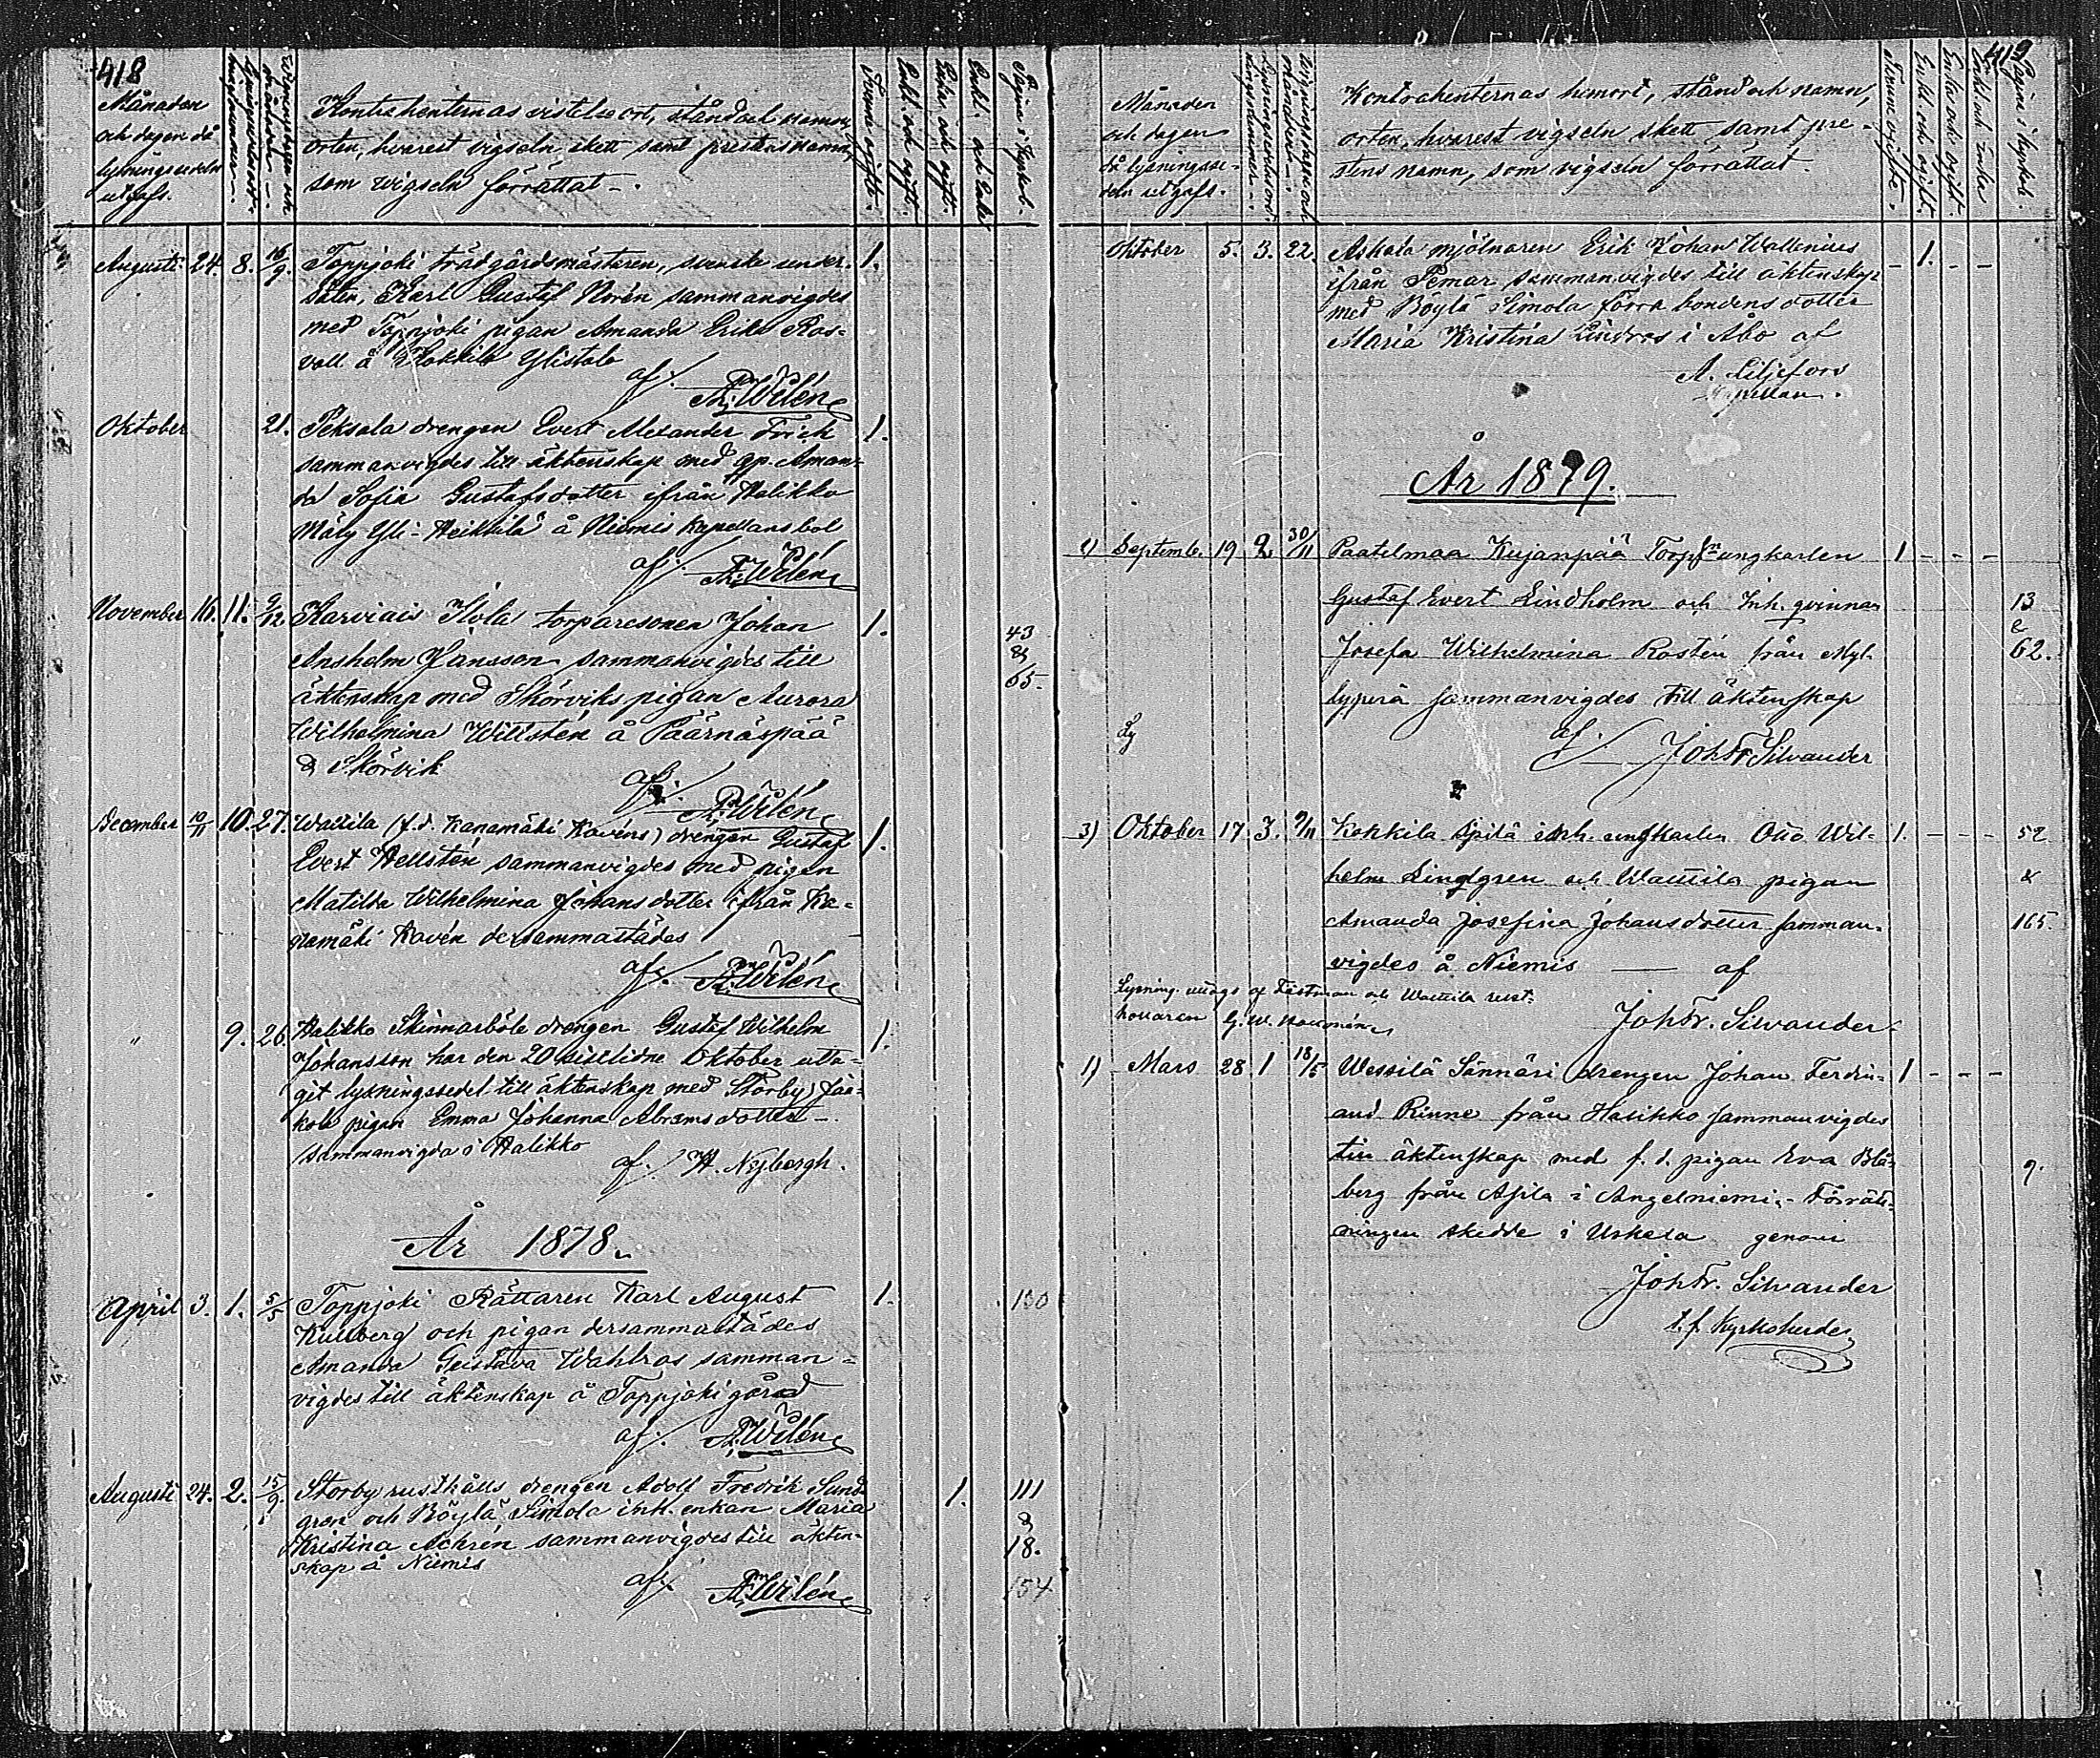 418
Månaden
och dagen då
lysningssedeln
utgafs.
Kontrahenternas vistelseort, stånd och namn,
orten, hvarest vigseln skett samt prestens namn,
som vigseln förrättat.
Förra ogifte.
Enkl. och ogift.
Enka och ogift.
Enkl. och Enka
Pagina i Kyrkob.
Augusti 24. 8. 16/9. Toppjoki trädgårdsmästaren, svenske under- 1.
såten, Karl Gustaf Norén sammanvigdes
med Toppjoki pigan Amanda Erika Ros-
vall å Kokkila Ylistalo
af. Wilén
Oktober 21. Peksala drengen Evert Alexander Frick 1.
sammanvigdes till äktenskap med qp. Aman-
da Sofia Gustafsdotter ifrån Halikko
Märy Yli-Heikkilä å Niemis kapellansbol
af. Wilén
November 16. 11. 9/12 Karviais torparesonen Johan 1.
Ansholm Jansson sammanvigdes till 43 &
äktenskap med Skörviks pigan Aurora 65.
Wilhelmina Willstén å Päärnäspää
& Skörvik
af. Wilén
December 10/11 10. 27. Wattila (f.d. Kanamäki Kavéns) drengen Gustaf 1.
Evert Hellstén sammanvigdes med pigan
Matilda Wilhelmina Johansdotter ifrån Ka-
namäki Kavén dersammastädes
af. Wilén
" 9. 26. Halikko Skinnarböle drengen Gustaf Wilhelm 1.
Johansson har den 20 sistlidne Oktober utta-
git lysningssedel till äktenskap med Storby Jaa-
kola pigan Emma Johanna Abramsdotter
sammanvigda i Halikko
af. H. Nybergh.
År 1878.
April 3. 1. 5/5 Toppjoki Rättaren Karl August 1. 130
Kullberg och pigan dersammastädes
Amanda Gustava Wahlros samman-
vigdes till äktenskap å Toppjoki gård
af. Wilén
Augusti 24. 2. 15/9. Storby rusthålls drengen Adolf Fredrik Sund- 1. 111
gren och Böylä Simola inh. enkan Maria &
Kristina Achrén sammanvigdes till äkten- 18.
skap å Niemis
af. Wilén 154
419
Månaden
och dagen
då lysningsse-
deln utgafs.
Kontrahenternas hemort, stånd och namn,
orten, hvarest vigseln skett samt pre-
stens namn, som vigseln förrättat.
Förra ogifte.
Enkl. och ogift.
Enka och ogift.
Enkl. och Enka
Pagina i kyrkob.
Oktober 5. 3. 22. Askala mjölnaren Erik Johan Wallenius - 1. - -
ifrån Pemar sammanvigdes till äktenskap
med Böylä Simola förra bondens dotter
Maria Kristina Lindros i Åbo af
A. Liljefors
Kapellan.
År 1879.
1) Septemb. 19 2 30/11 Paatelmaa Kujanpää Torp. ungkarlen 1 - - -
Gustaf Evert Lindholm och Inh. qvinnan 13
Josefa Wilhelmina Rostén från Myl- & 62.
lyperä sammanvigdes till äktenskap
af. Joh Fr Silvander
3) Oktober 17 3. 9/11 Kokkila Äpilä inh. ungkarlen Otto Wil- 1. - - - 52
helm Lindgren och Wattila pigan &
Amanda Josefina Johansdotter samman- 165.
vigdes å Niemis — af
Lysning uttogs af Fästman och Wattila rust-
hållaren G. W.
Joh Fr. Silvander
1) Mars 28 1 18/5 Wessilä Sännäri drengen Johan Ferdin- 1 - - -
and Rinne från Halikko sammanvigdes
till äktenskap med f. d. pigan Eva Blå- 9.
berg från Asila i Angelniemi. - Förrätt-
ningen skedde i Uskela genom
Joh Fr. Silvander
t. f. Kyrkoherde